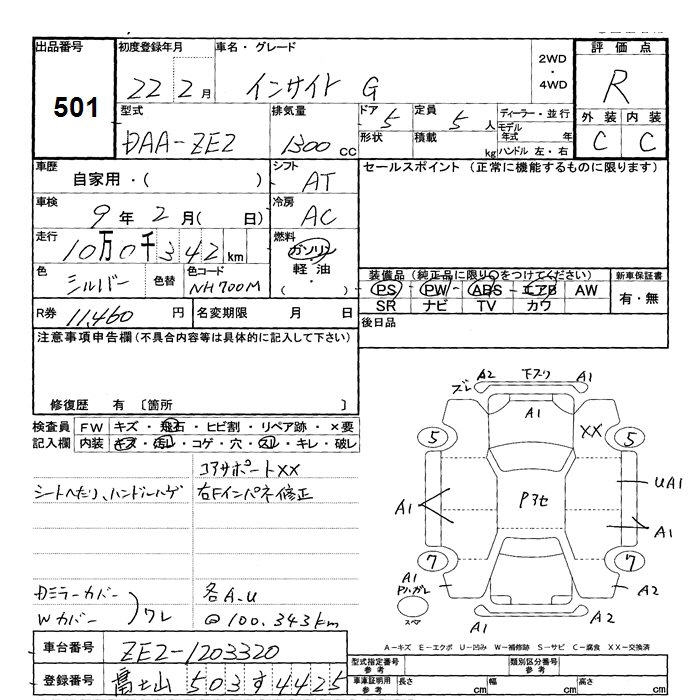 出品番号
501
初度登録年月
22 2月
車名・グレード
インサイト G
2WD
・
4WD
評価点
R
外装 内装
C C
型式
DAA-ZE2
排気量
1300 CC
ドア 5
形状
定員 5 人
積載 kg
ディーラー・並行
モデル年式 年
ハンドル 左・右
車歴
自家用・( )
シフト
AT
セールスポイント (正常に機能するものに限ります)
車検
9年 2月( 日)
冷房
AC
走行
10万0千342km
燃料
ガソリン
軽油
・( )
色
シルバー
色替
色コード
NH700M
装備品 (純正品に限り○をつけてください)
新車保証書
PS PW ABS エアB AW
有・無
SR ナビ TV カワ
R券 11,460 円
名変期限 月 日
後日品
注意事項申告欄 (不具合内容等は具体的に記入して下さい)
修復歴 有 〔箇所 〕
検査員記入欄
FW キズ・飛石・ヒビ割・リペア跡・×要
内装 キズ・汚レ・コゲ・穴・スレ・キレ・破レ
コアサポートXX
シートへたり、ハンドルハゲ
右Fインパネ修正
Dミラーカバー
Wカバー
ワレ
各A.U
@100.343km
ズレ A2 下スリ A1
A1
5 XX 5
UA1
A1
Pアセ
A1
7 7
A1
Pハガレ
スペア
A2
A1 A2
A-キズ E-エクボ U-凹み W-補修跡 S-サビ C-腐食 XX-交換済
車台番号
ZE2-1203320
登録番号
富士山 503す4425
型式指定番号
参考
類別区分番号
参考
車庫証明用
参考
長さ cm
幅 cm
高さ cm